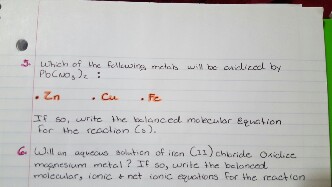 5. Which of the following metals will be oxidized by
Pb(NO3)2 :
• Zn • Cu • Fe
If so, write the balanced molecular Equation
for the reaction (s).
6. Will an aqueous solution of iron (II) chloride Oxidize
magnesium metal? If so, write the balanced
molecular, ionic & net ionic equations for the reaction